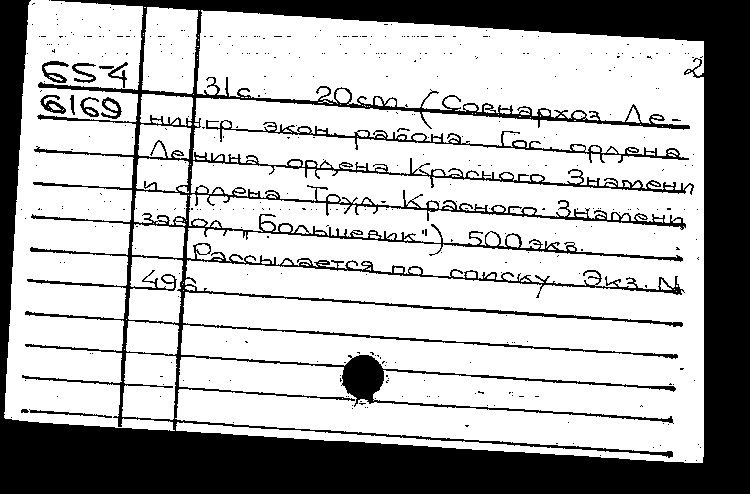 2
654
6169
31с. 20см. (Совнархоз Ле-
нингр. экон. района. Гос. ордена
Ленина, ордена Красного Знамени
и ордена Труд. Красного Знамени
завод „Большевик"). 500 экз.
Рассылается по списку. Экз. №
49а.